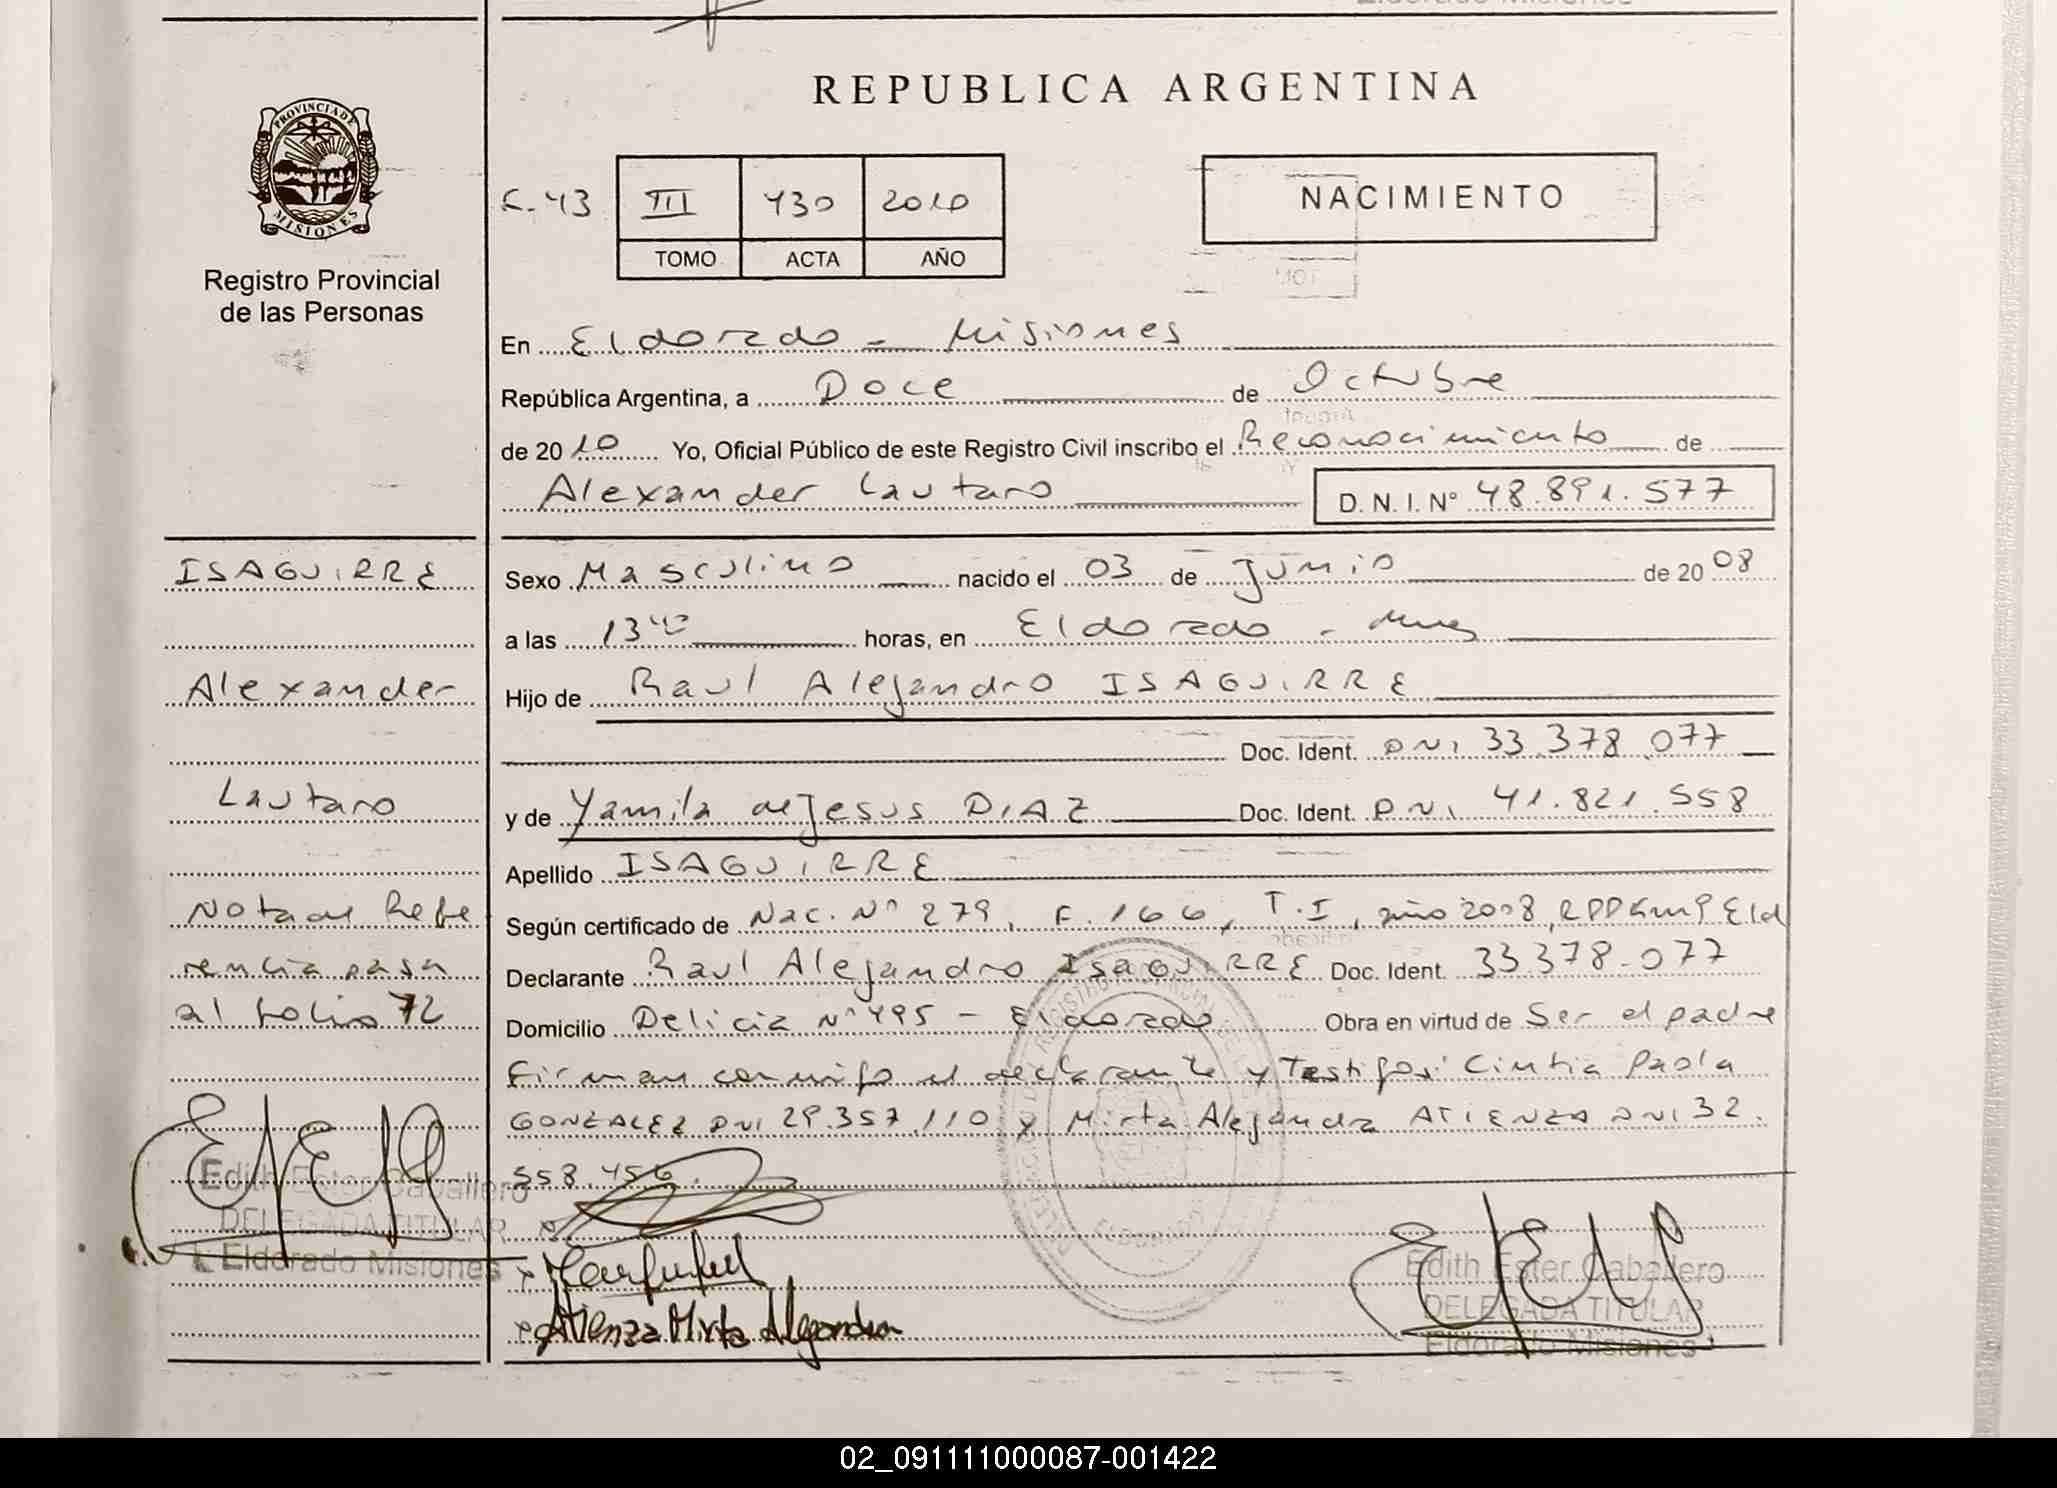 Eldorado Misiones
REPUBLICA ARGENTINA
PROVINCIA DE
MISIONES
Registro Provincial
de las Personas
F. 43 III 430 2010
TOMO ACTA AÑO
NACIMIENTO
En Eldorado - Misiones
República Argentina, a Doce de Octubre
de 2010 Yo, Oficial Público de este Registro Civil inscribo el Reconocimiento de
Alexander Lautaro D. N. I. Nº 48.891.577
ISAGUIRRE
Alexander
Lautaro
Nota de Refe
rencia pasa
al folio 72
Edith Ester Caballero
DELEGADA TITULAR
Eldorado Misiones
Sexo Masculino nacido el 03 de Junio de 2008
a las 13 40 horas, en Eldorado - Mnes
Hijo de Raul Alejandro ISAGUIRRE
Doc. Ident. DNI 33.378.077
y de Yamila de Jesus DIAZ Doc. Ident. DNI 41.821.558
Apellido ISAGUIRRE
Según certificado de Nac. Nº 279, F. 166, T.I, año 2008, Eld
Declarante Raul Alejandro ISAGUIRRE Doc. Ident. 33.378.077
Domicilio Delicia Nº 495 - Eldorado Obra en virtud de Ser el padre
Firman conmigo el declarante y Testigos: Cintia Paola
GONZALEZ DNI 29.357.110 y Mirta Alejandra ATIENZA DNI 32.
558.456.
Atienza Mirta Alejandra
Edith Ester Caballero
DELEGADA TITULAR
Eldorado Misiones
02_091111000087-001422